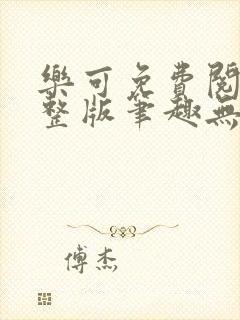 樂可免費閱
整版筆趣無
傅杰